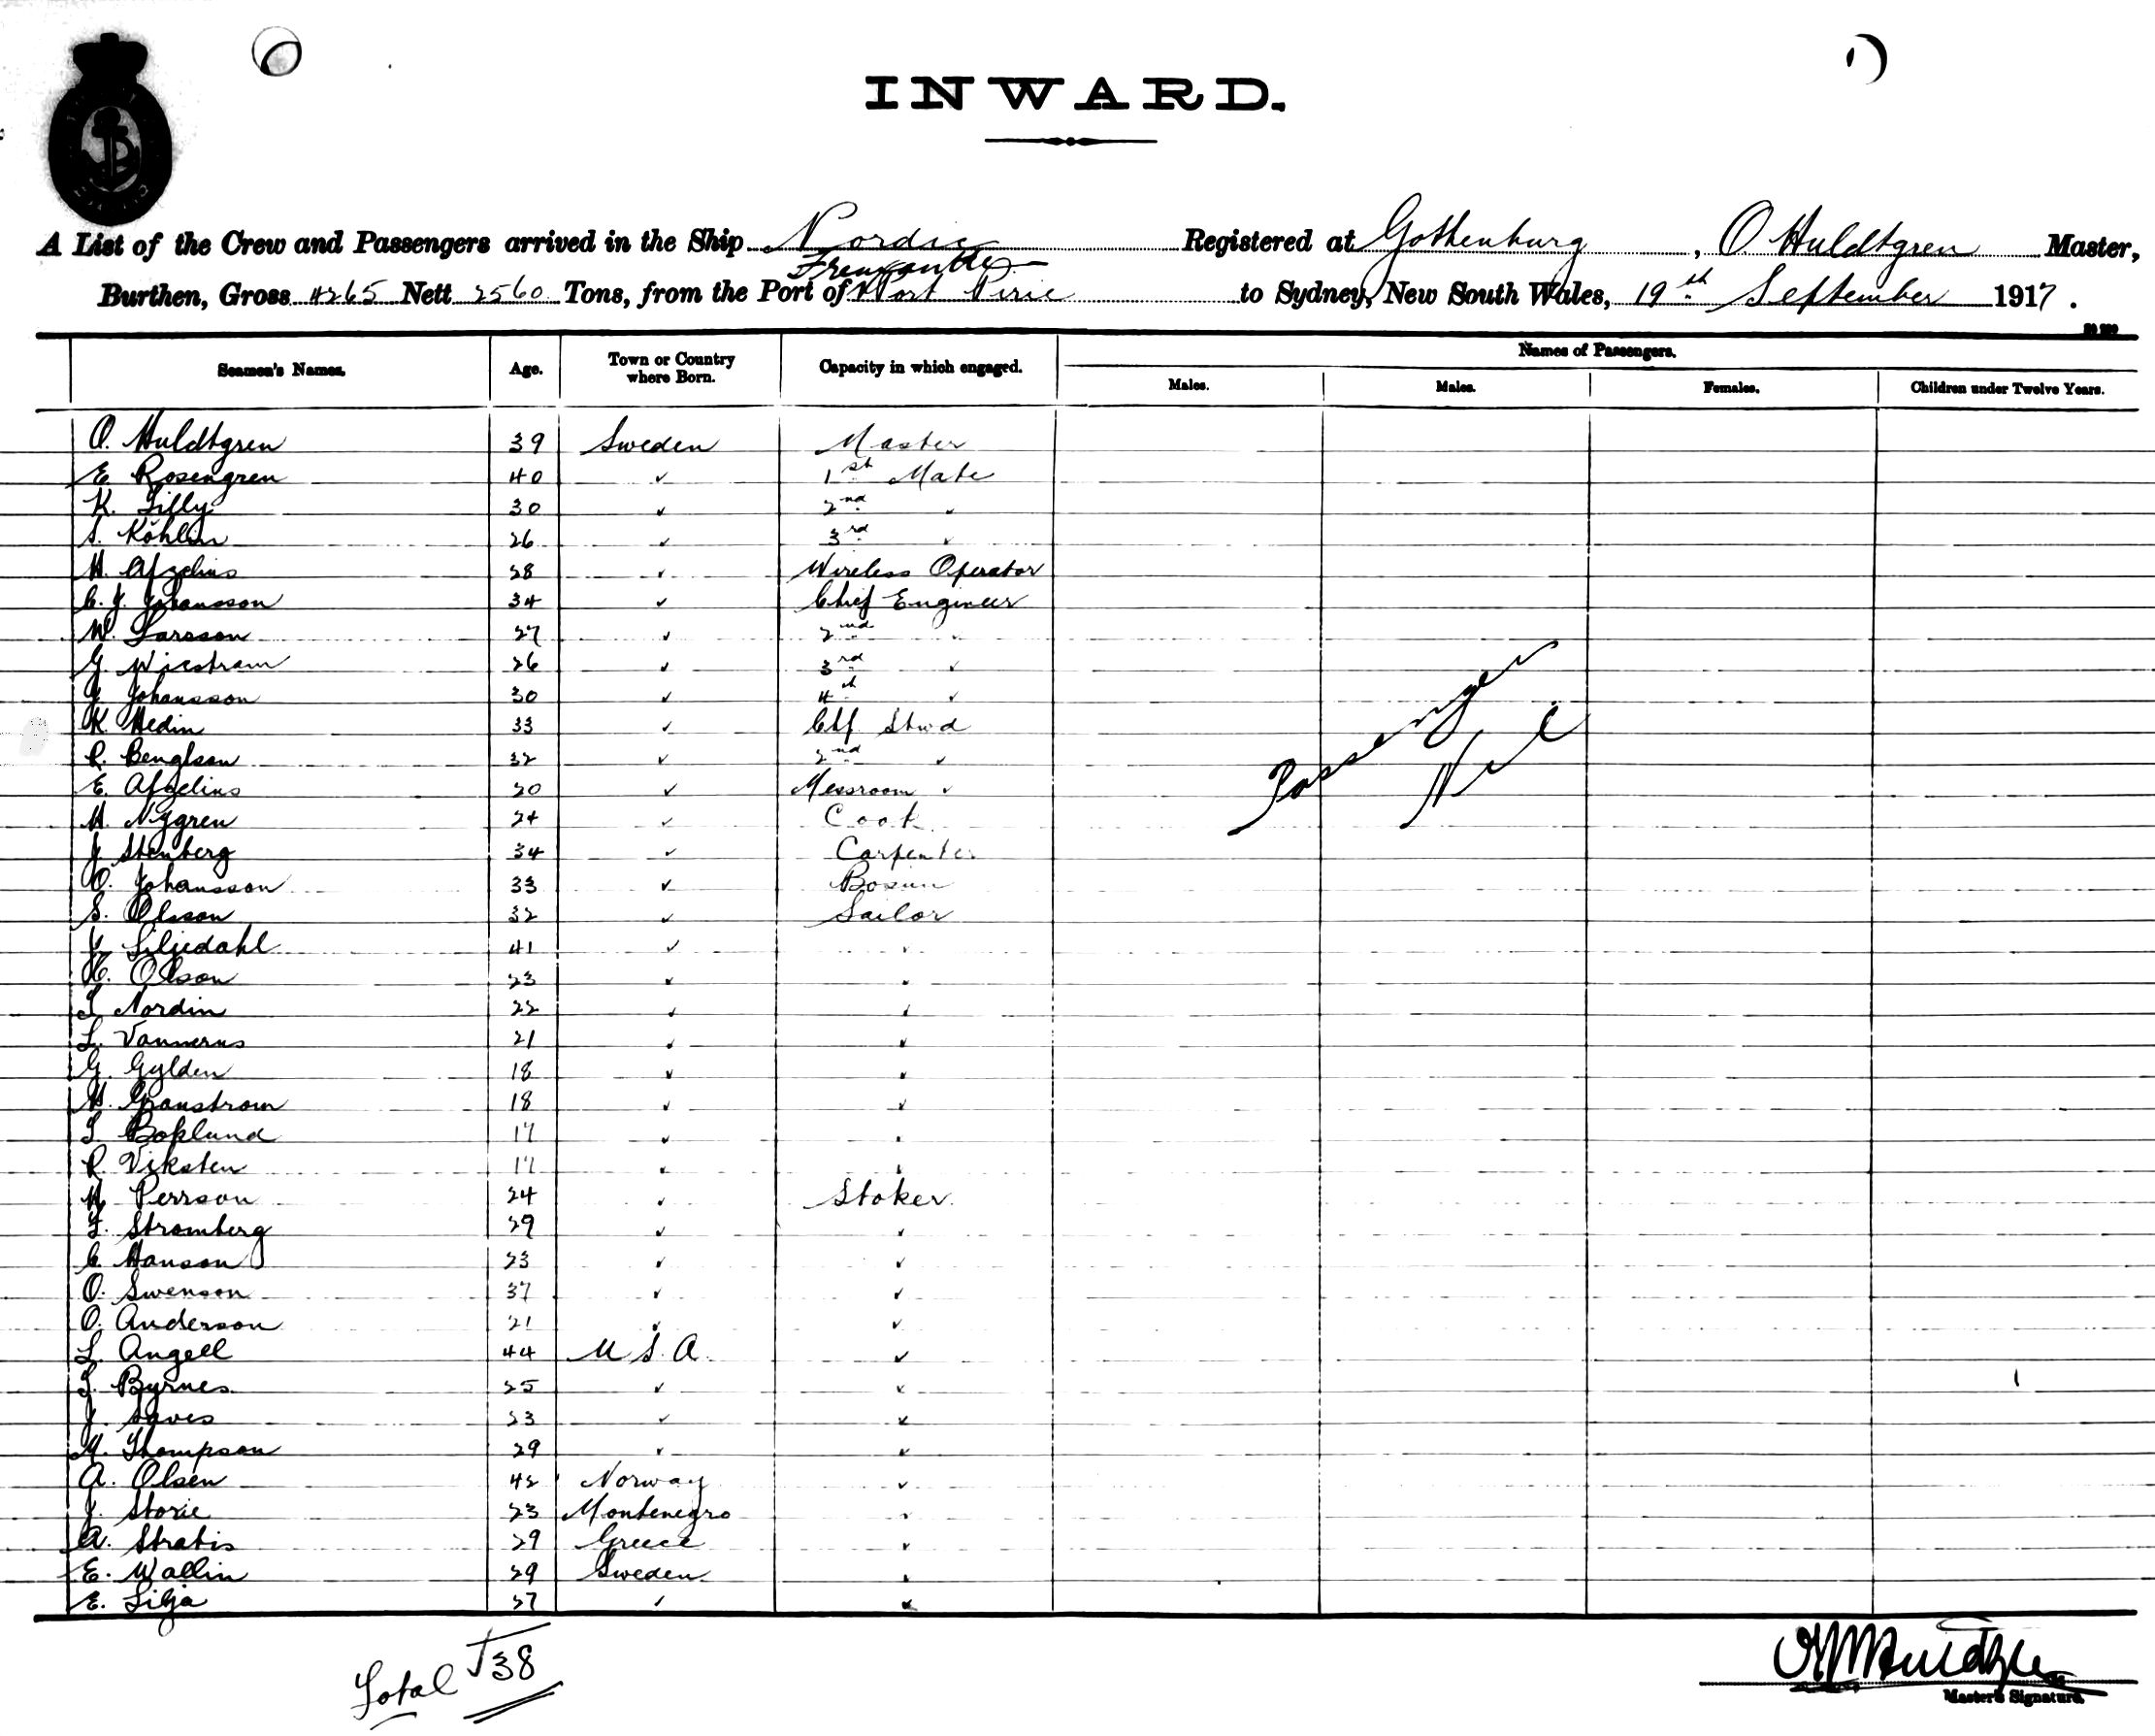 INWARD.
A List of the Crew and Passengers arrived in the Ship Nordic Registered at Gothenburg, O. Huldtgren Master,
Fremantle
Burthen, Gross 4265 Nett 2560 Tons, from the Port of Port Pirie to Sydney, New South Wales, 19th September 1917.
Seamen's Names. Age. Town or Country where Born. Capacity in which engaged. Names of Passengers.
Males. Males. Females. Children under Twelve Years.
O. Huldtgren 39 Sweden Master
E. Rosengren 40 ✓ 1st Mate
K. Lilly 30 ✓ 2nd ✓
S. Köhlin 26 ✓ 3rd ✓
H. Afzelius 28 ✓ Wireless Operator
C. J. Johansson 34 ✓ Chief Engineer
W. Larsson 27 ✓ 2nd ✓
G. Wiestram 26 ✓ 3rd ✓
J. Johansson 30 ✓ 4th ✓
K. Hedin 33 ✓ Chf Stwd
R. Benglson 32 ✓ 2nd ✓
E. Afzelius 20 ✓ Messroom ✓
H. Nygren 24 ✓ Cook
J. Stenberg 34 ✓ Carpenter
O. Johansson 33 ✓ Bosun
S. Olsson 32 ✓ Sailor
J. Liljedahl 41 ✓ ✓
E. Olson 23 ✓ ✓
T. Nordin 22 ✓ ✓
L. Vannerus 21 ✓ ✓
G. Gylden 18 ✓ ✓
H. Granstrom 18 ✓ ✓
T. Boklund 17 ✓ ✓
R. Viksten 17 ✓ ✓
H. Perrson 24 ✓ Stoker
F. Stromberg 29 ✓ ✓
C. Hanson 23 ✓ ✓
O. Swenson 37 ✓ ✓
O. Anderson 21 ✓ ✓
L. Angell 44 U.S.A. ✓
T. Byrnes 25 ✓ ✓
J. 23 ✓ ✓
M. Thompson 29 ✓ ✓
A. Olsen 42 Norway ✓
J. Storie 23 Montenegro ✓
A. Stratis 29 Greece ✓
E. Wallin 29 Sweden ✓
E. Lilja 37 ✓ ✓
Passenger
Nil
Total 38
Master's Signature.